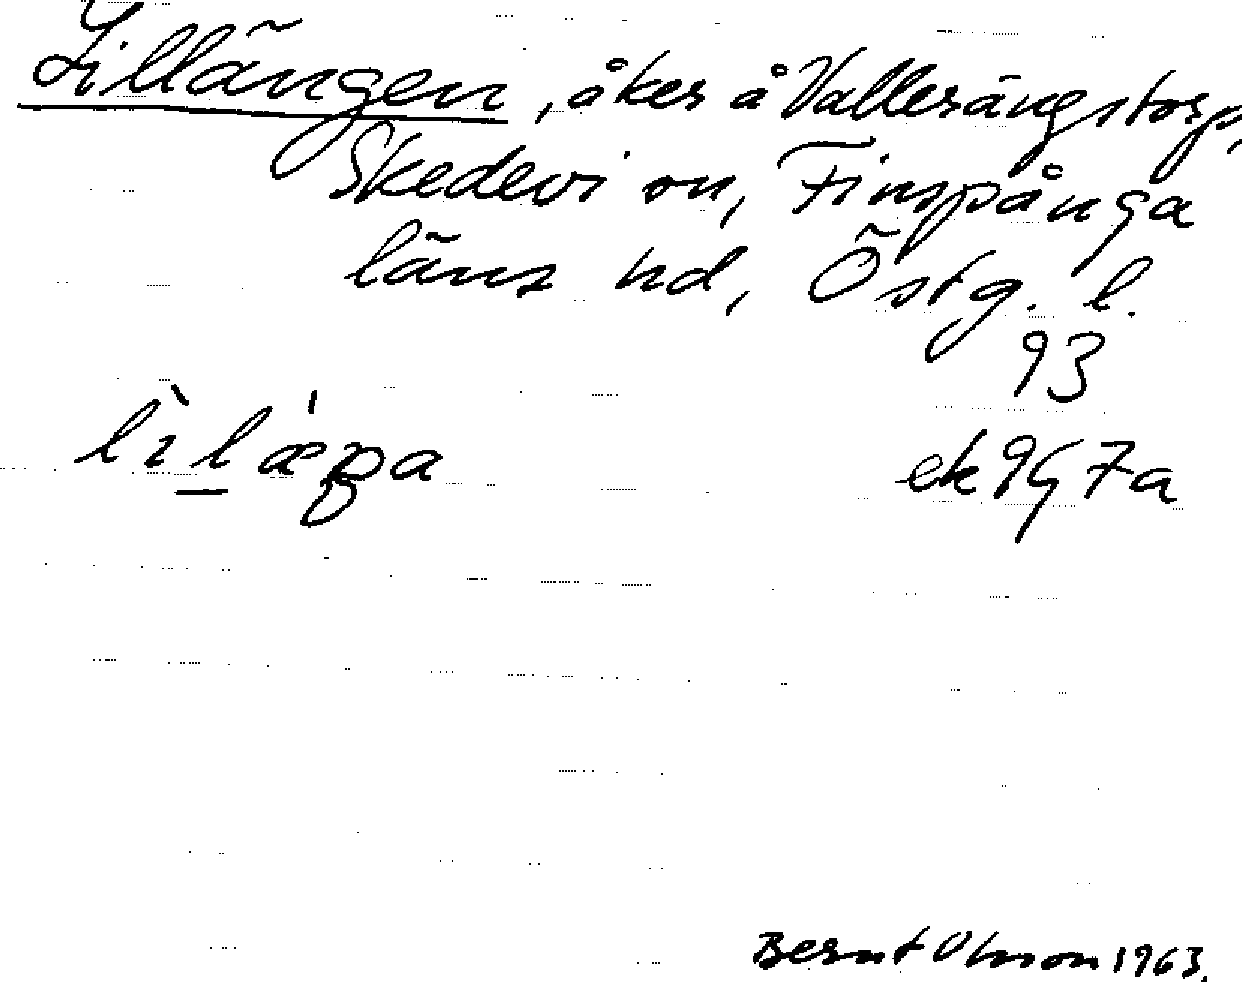 Lillängen, åker å Vallerängstorp,
Skedevi sn, Finspånga
läns hd, Östg. l.
93
ek 9G 7a
Bernt Olsson 1963.